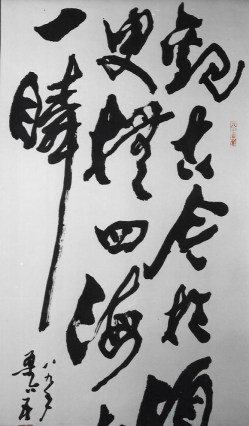 觀古今於須
臾撫四海於
一瞬
八九年